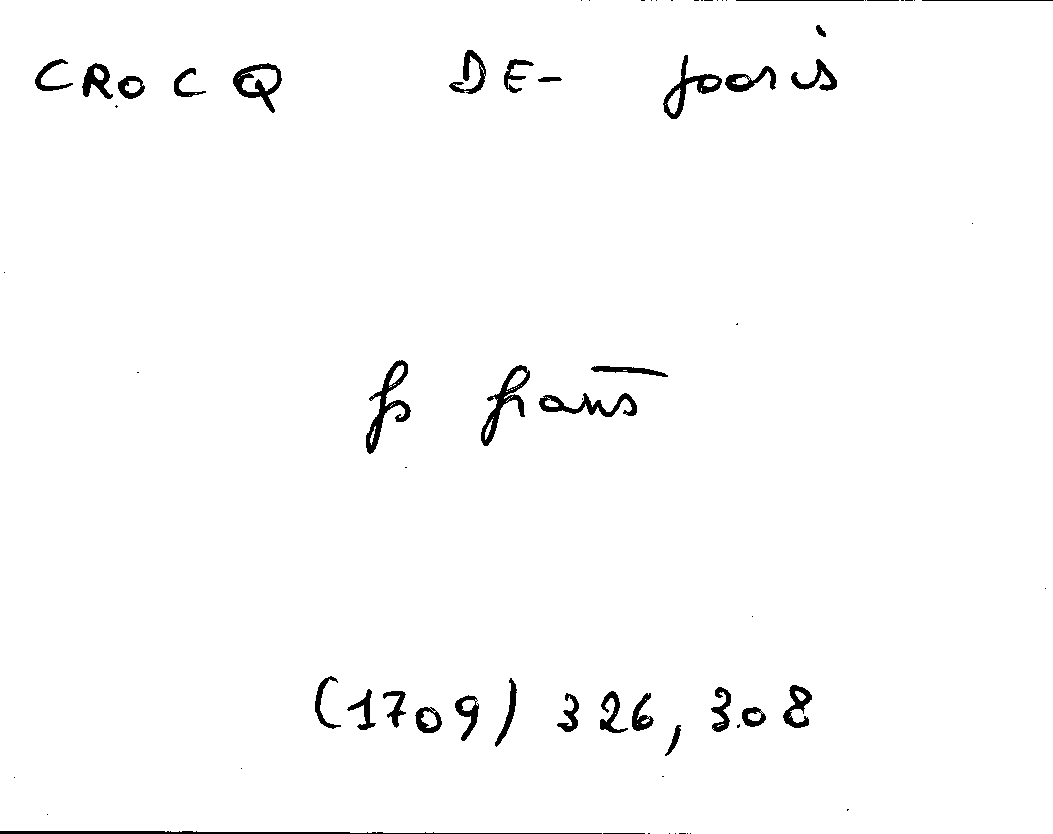 CROCQ DE- Jooris
fs frans
(1709) 326, 308